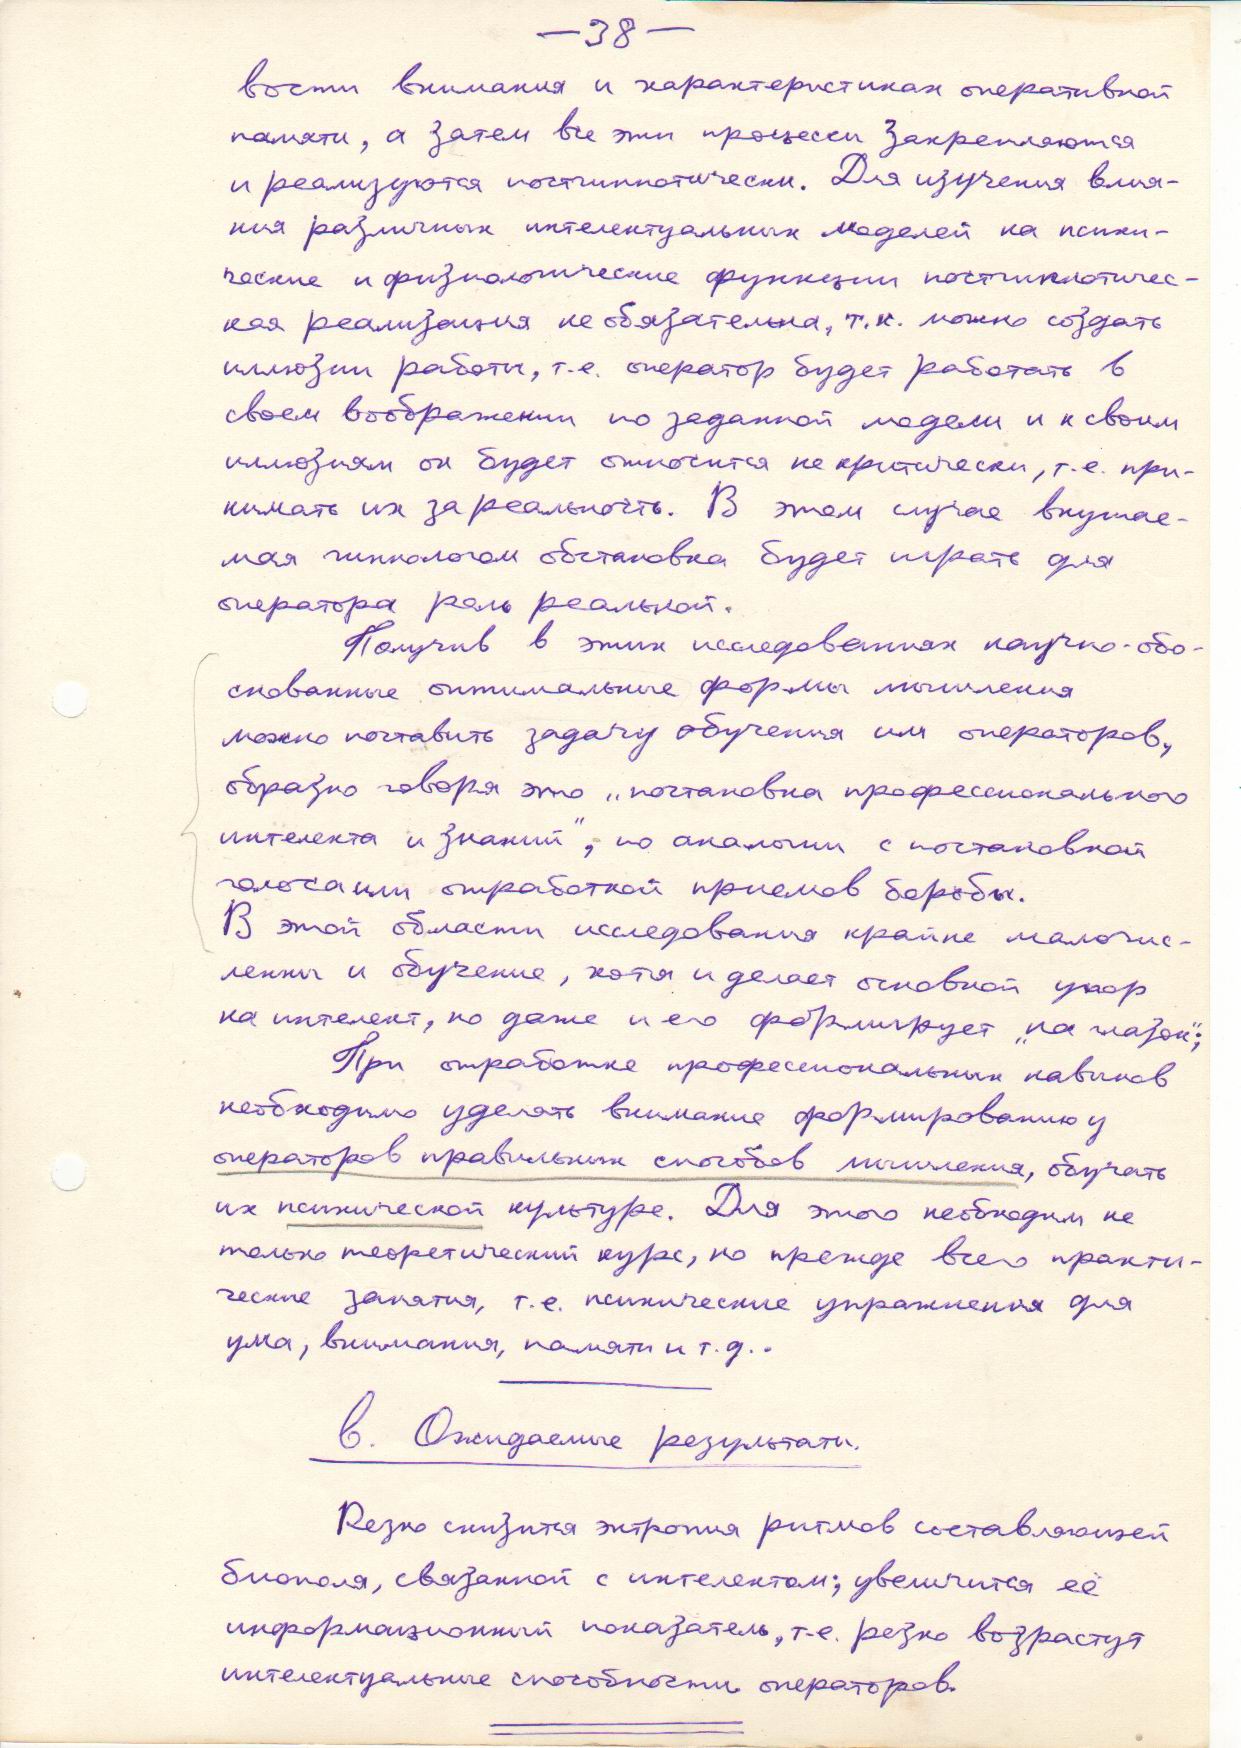 —38—
вости внимания и характеристиках оперативной
памяти, а затем все эти процессы закрепляются
и реализуются постгипнотически. Для изучения влия-
ния различных интелектуальных моделей на психи-
ческие и физиологические функции постгипнотичес-
кая реализация не обязательна, т.к. можно создать
иллюзии работы, т.е. оператор будет работать в
своем воображении по заданной модели и к своим
иллюзиям он будет относится не критически, т.е. при-
нимать их за реальность. В этом случае внушае-
мая гипнологом обстановка будет играть для
оператора роль реальной.
Получив в этих исследованиях научно-обо-
снованные оптимальные формы мышления
можно поставить задачу обучения им операторов,
образно говоря это „постановка профессионального
интелекта и знаний", по аналогии с постановкой
голоса или отработкой приемов борьбы.
В этой области исследования крайне малочис-
ленны и обучение, хотя и делает основной упор
на интелект, но даже и его формирует „на глазок";
При отработке профессиональных навыков
необходимо уделять внимание формированию у
операторов правильных способов мышления, обучать
их психической культуре. Для этого необходим не
только теоретический курс, но прежде всего практи-
ческие занятия, т.е. психические упражнения для
ума, внимания, памяти и т.д..
в. Ожидаемые результаты.
Резко снизится энтропия ритмов составляющей
биополя, связанной с интелектом; увеличится её
информационный показатель, т.е. резко возрастут
интелектуальные способности операторов.